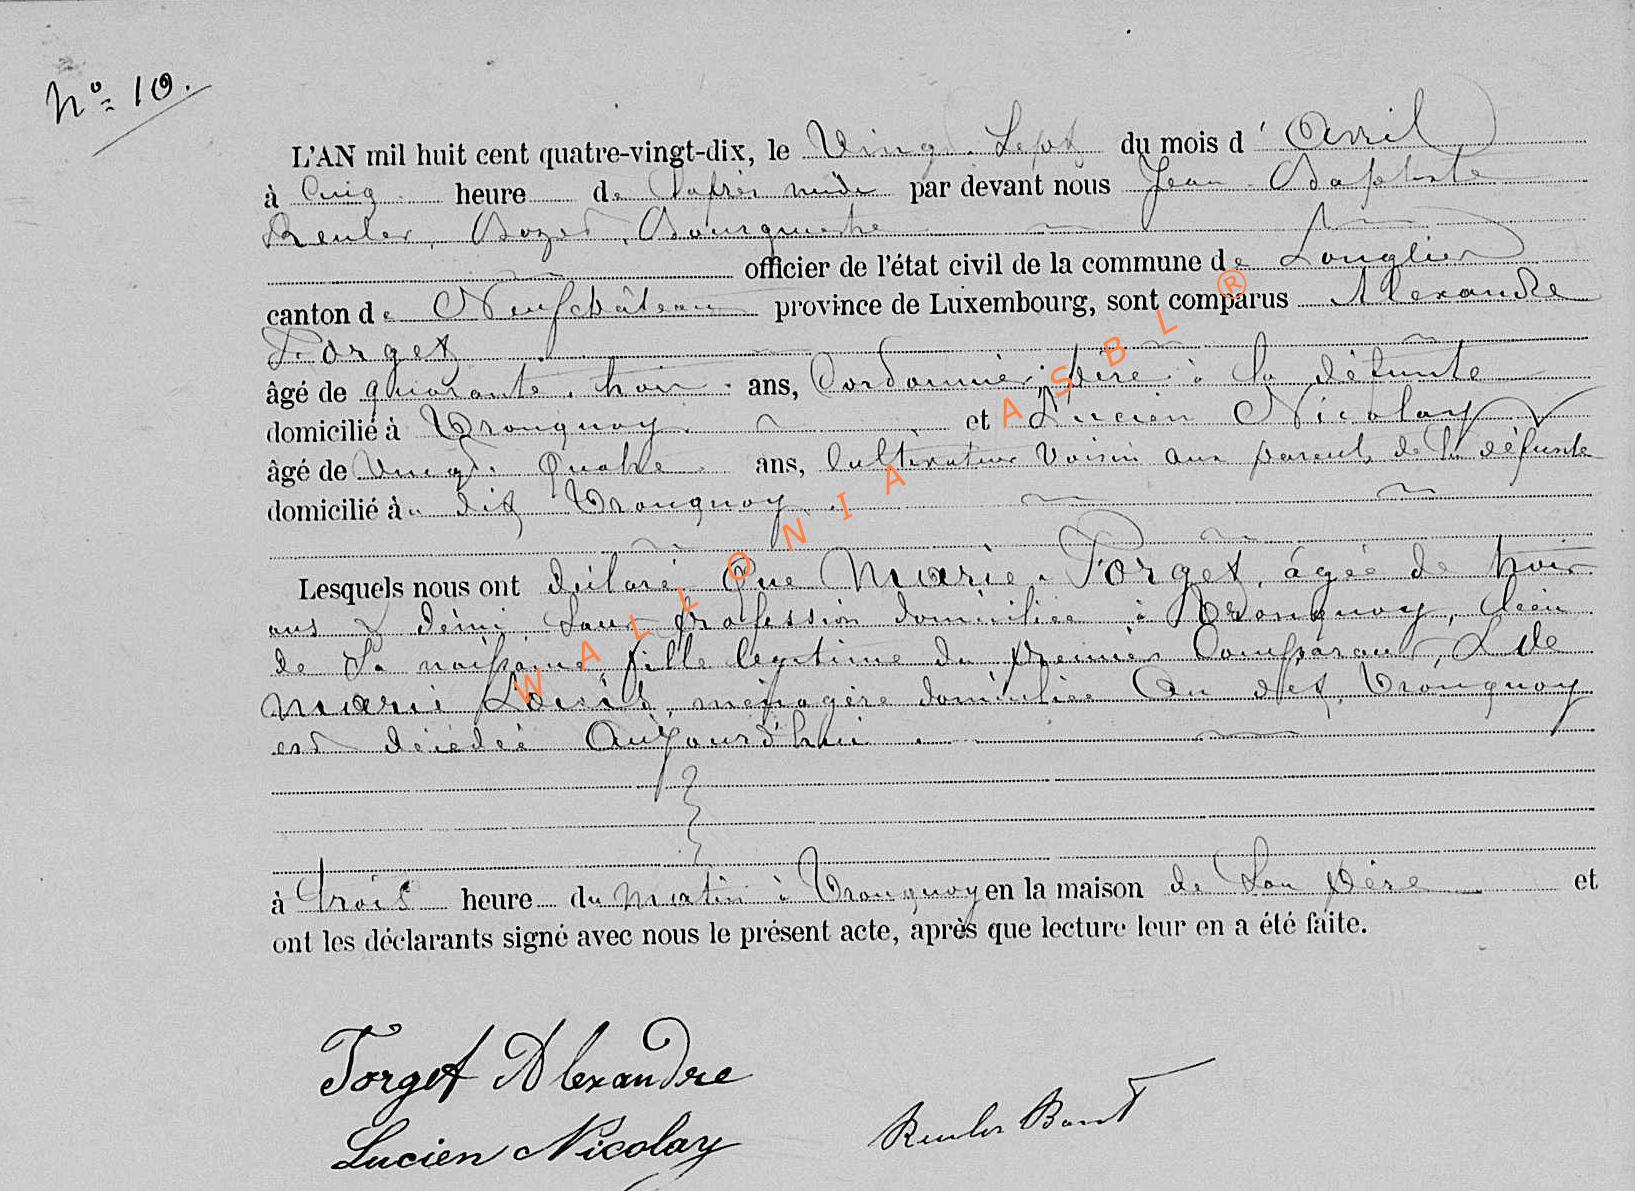 N° 10.
L'AN mil huit cent quatre-vingt-dix, le Vingt Sept du mois d' Avril
à Cinq heure de l'après midi par devant nous Jean Baptiste
Reuler, Bourgmestre
officier de l'état civil de la commune de Longlier
canton de Neufchâteau province de Luxembourg, sont comparus Alexandre
Forget
âgé de quarante trois ans, Cordonnier, père à la défunte
domicilié à Tronquoy et Lucien Nicolay
âgé de Vingt Quatre ans, Cultivateur Voisin aux parents de la défunte
domicilié au dit Tronquoy.
Lesquels nous ont déclaré Que Marie Forget, âgée de trois
ans & demi, sans profession domiciliée à Tronquoy, lieu
de sa naissance, fille légitime du premier Comparant, & de
Marie, ménagère domiciliée Au dit Tronquoy
est décédée Aujourd'hui
à trois heure du matin à Tronquoy en la maison de Son père et
ont les déclarants signé avec nous le présent acte, après que lecture leur en a été faite.
Forget Alexandre
Lucien Nicolay
Reuler
WALLONIA ASBL ®